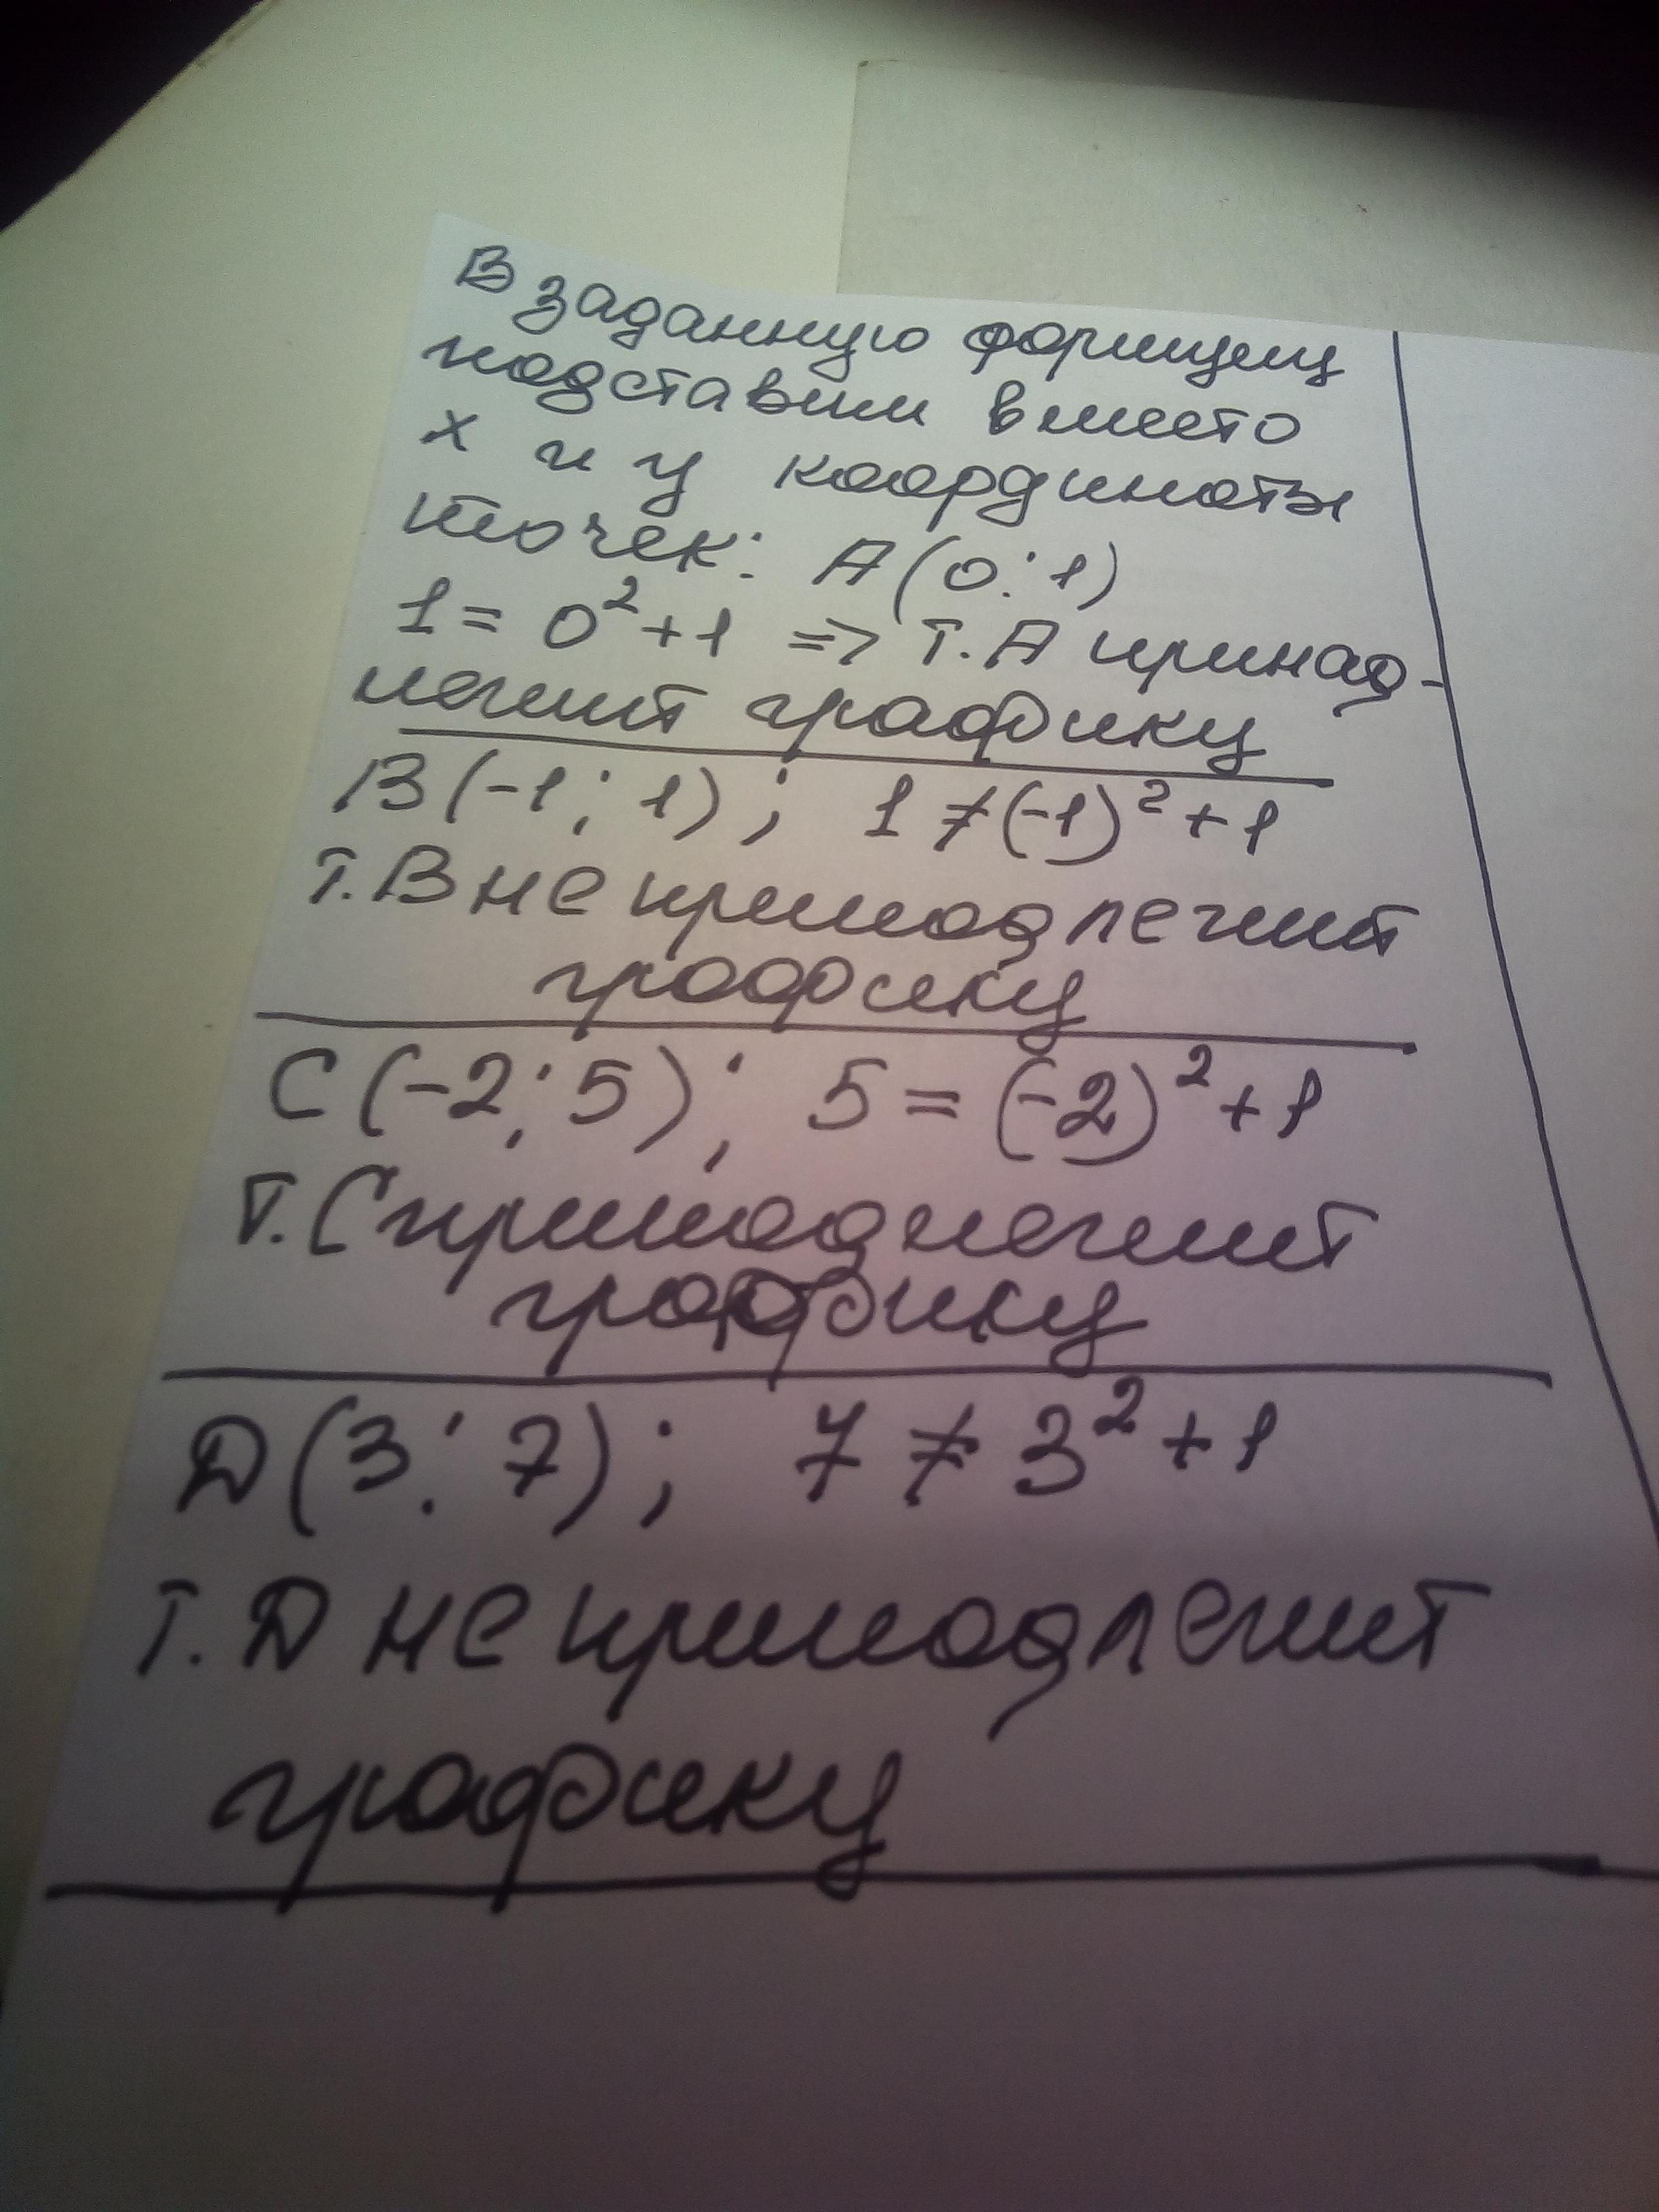 В заданную формулу
подставим вместо
х и у координаты
точек: А(0;1)
1 = 0² + 1 => т. А принад-
лежит графику
В(-1; 1); 1 ≠ (-1)² + 1
т. В не принадлежит
графику
С(-2; 5); 5 = (-2)² + 1
т. С принадлежит
графику
D(3; 7); 7 ≠ 3² + 1
т. D не принадлежит
графику